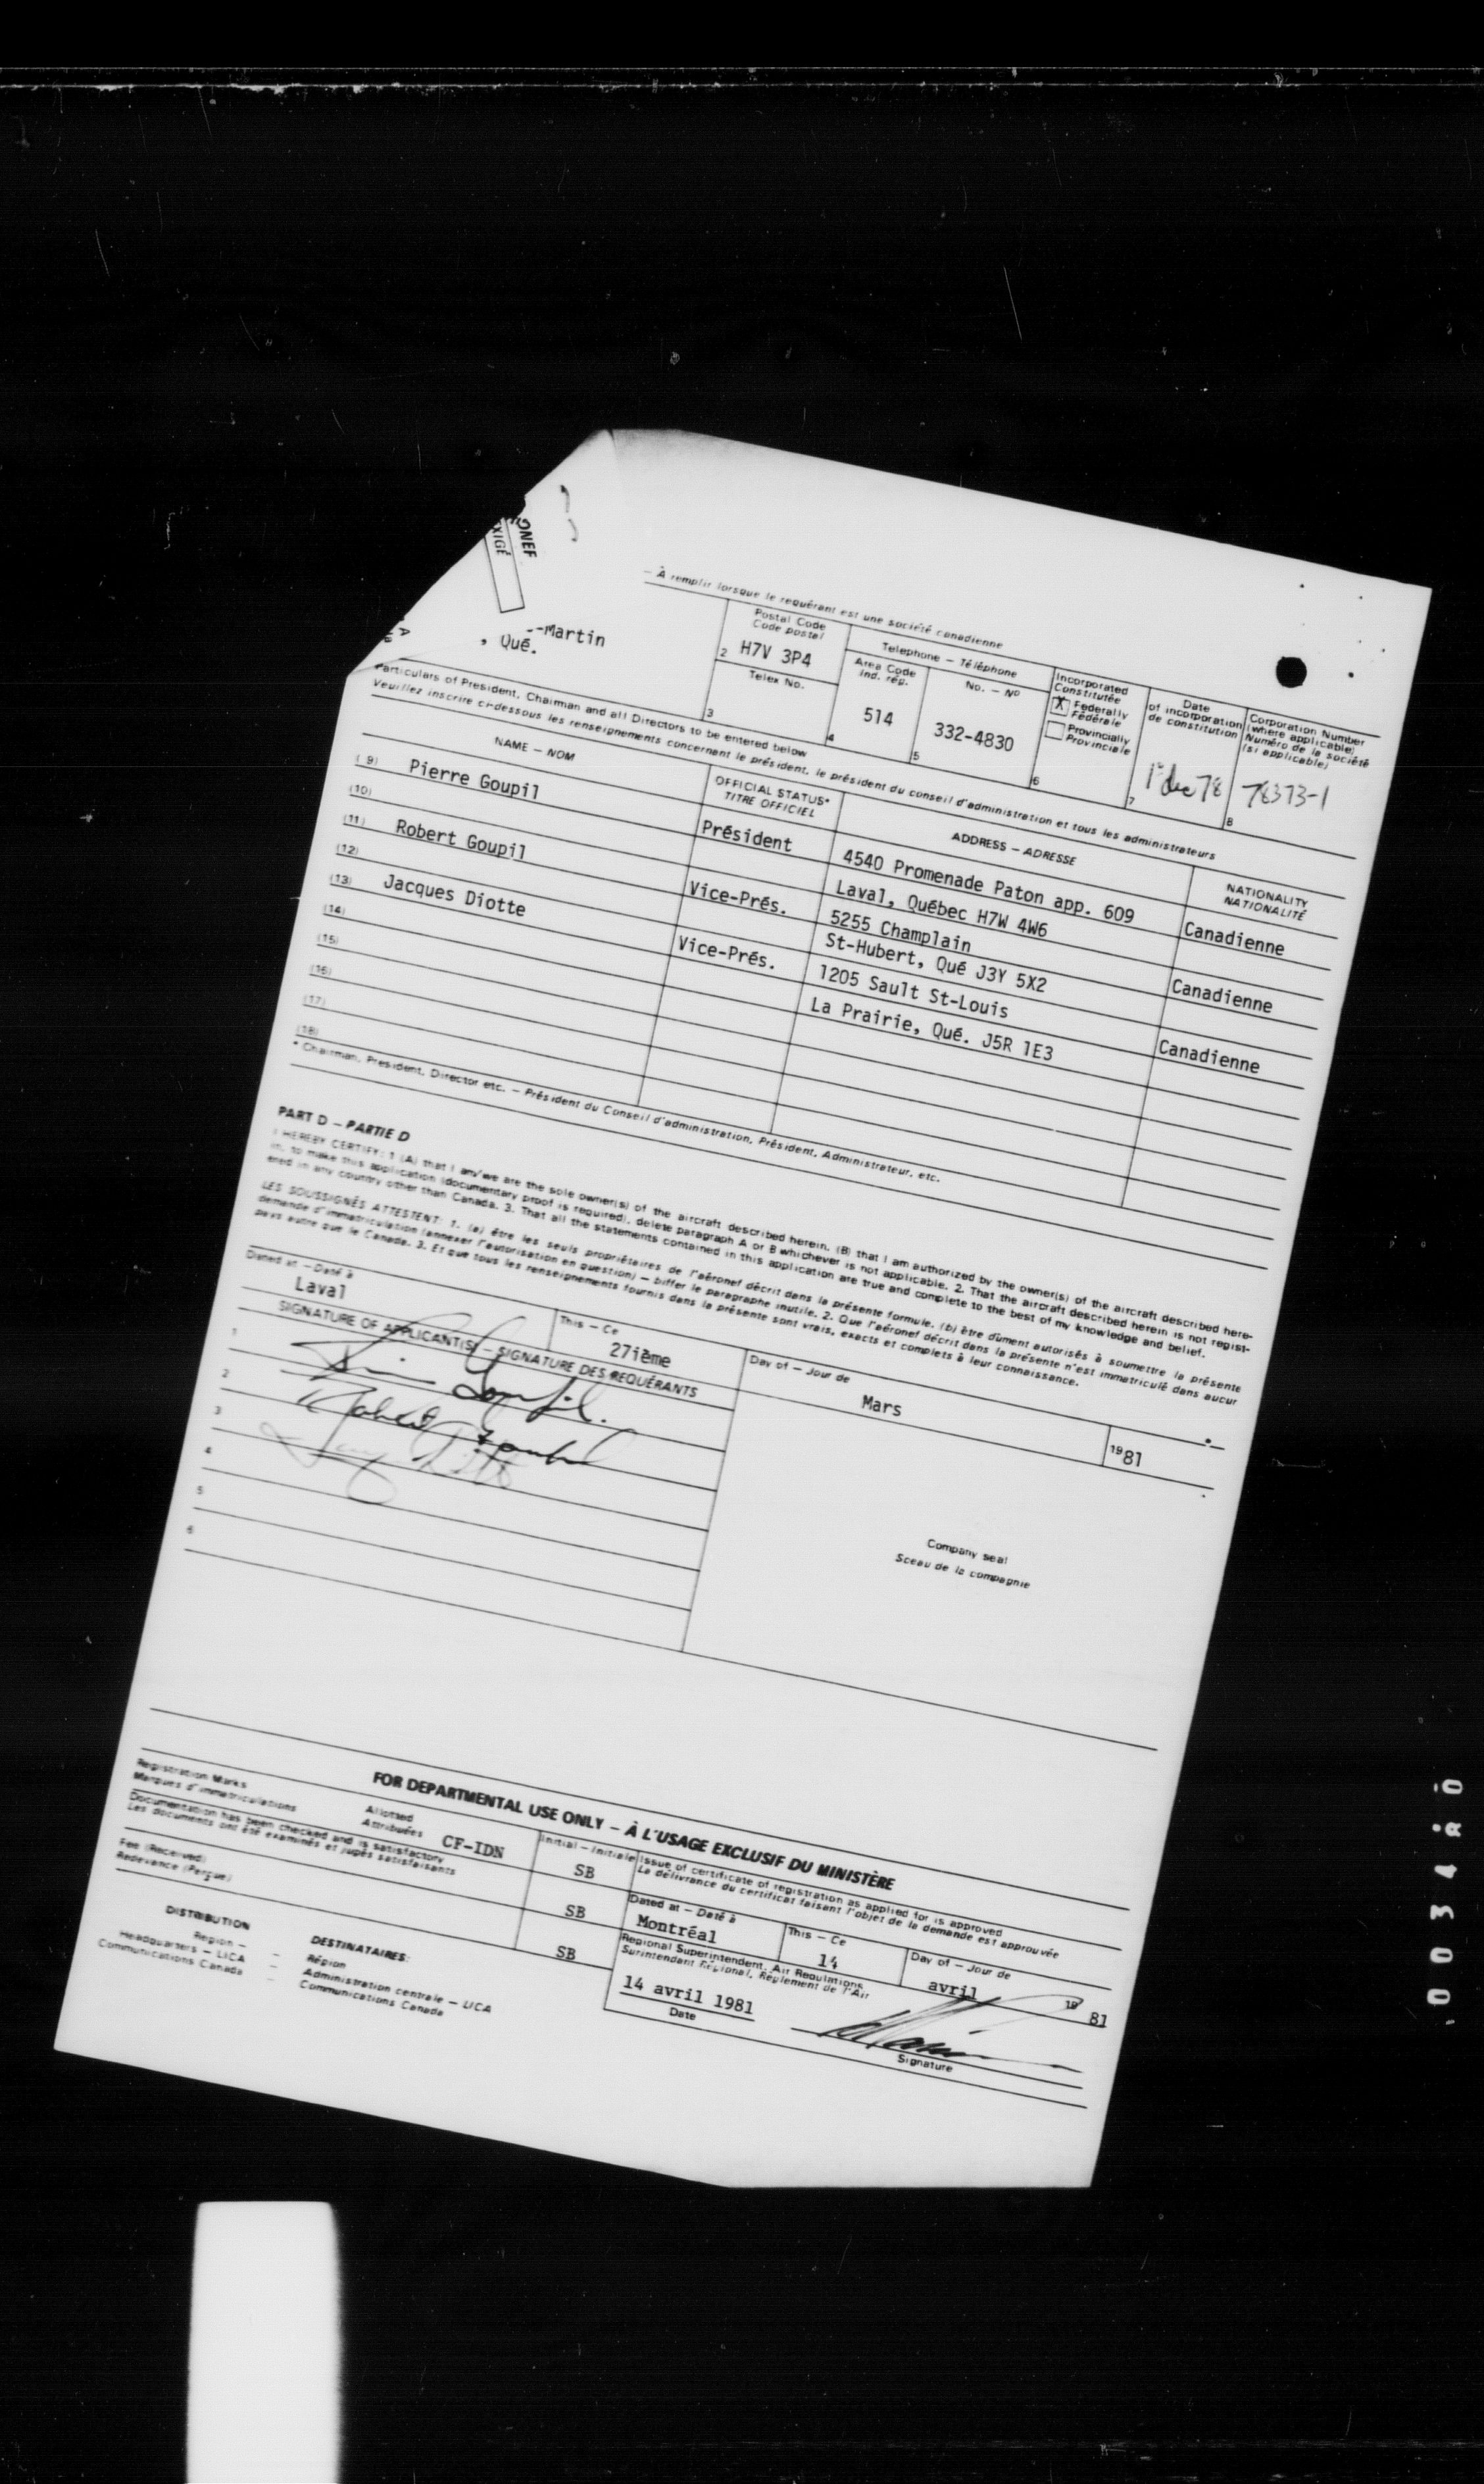 ONEF
XIGÉ
– À remplir lorsque le requérant est une société canadienne
-Martin
, Qué.
Postal Code
Code postal
2 H7V 3P4
Telex No.
3
Telephone – Téléphone
Area Code
Ind. rég.
514
4
No. – Nº
332-4830
5
Incorporated
Constituée
X Federally
Fédérale
Provincially
Provinciale
6
Date
of incorporation
de constitution
1er dec 78
7
Corporation Number
(where applicable)
Numéro de la société
(si applicable)
78373-1
8
Particulars of President, Chairman and all Directors to be entered below
Veuillez inscrire ci-dessous les renseignements concernant le président, le président du conseil d'administration et tous les administrateurs
NAME – NOM
OFFICIAL STATUS*
TITRE OFFICIEL
ADDRESS – ADRESSE
NATIONALITY
NATIONALITÉ
(9) Pierre Goupil Président 4540 Promenade Paton app. 609 Canadienne
(10) Laval, Québec H7W 4W6
(11) Robert Goupil Vice-Prés. 5255 Champlain Canadienne
(12) St-Hubert, Qué J3Y 5X2
(13) Jacques Diotte Vice-Prés. 1205 Sault St-Louis Canadienne
(14) La Prairie, Qué. J5R 1E3
(15)
(16)
(17)
(18)
* Chairman, President, Director etc. – Président du Conseil d'administration, Président, Administrateur, etc.
PART D – PARTIE D
I HEREBY CERTIFY: 1 (A) that I am/we are the sole owner(s) of the aircraft described herein. (B) that I am authorized by the owner(s) of the aircraft described here-
in, to make this application (documentary proof is required), delete paragraph A or B whichever is not applicable. 2. That the aircraft described herein is not regist-
ered in any country other than Canada. 3. That all the statements contained in this application are true and complete to the best of my knowledge and belief.
LES SOUSSIGNÉS ATTESTENT: 1. (a) être les seuls propriétaires de l'aéronef décrit dans la présente formule. (b) être dûment autorisés à soumettre la présente
demande d'immatriculation (annexer l'autorisation en question) – biffer le paragraphe inutile. 2. Que l'aéronef décrit dans la présente n'est immatriculé dans aucun
pays autre que le Canada. 3. Et que tous les renseignements fournis dans la présente sont vrais, exacts et complets à leur connaissance.
Dated at – Daté à
Laval
This – Ce
27ième
Day of – Jour de
Mars
1981
SIGNATURE OF APPLICANT(S) – SIGNATURE DES REQUÉRANTS
1
2
3
4
5
6
Company seal
Sceau de la compagnie
FOR DEPARTMENTAL USE ONLY – À L'USAGE EXCLUSIF DU MINISTÈRE
Registration Marks
Marques d'immatriculations
Allotted
Attribuées
CF-IDN
Initial – Initiale
SB
Documentation has been checked and is satisfactory
Les documents ont été examinés et jugés satisfaisants
SB
Fee (Received)
Redevance (Perçue)
SB
Issue of certificate of registration as applied for is approved
La délivrance du certificat faisant l'objet de la demande est approuvée
Dated at – Daté à
Montréal
This – Ce
14
Day of – Jour de
avril
19 81
Regional Superintendent, Air Regulations
Surintendant Régional, Règlement de l'Air
14 avril 1981
Date
Signature
DISTRIBUTION
Region –
Headquarters – LICA –
Communications Canada –
DESTINATAIRES:
Région
Administration centrale – LICA
Communications Canada
003480